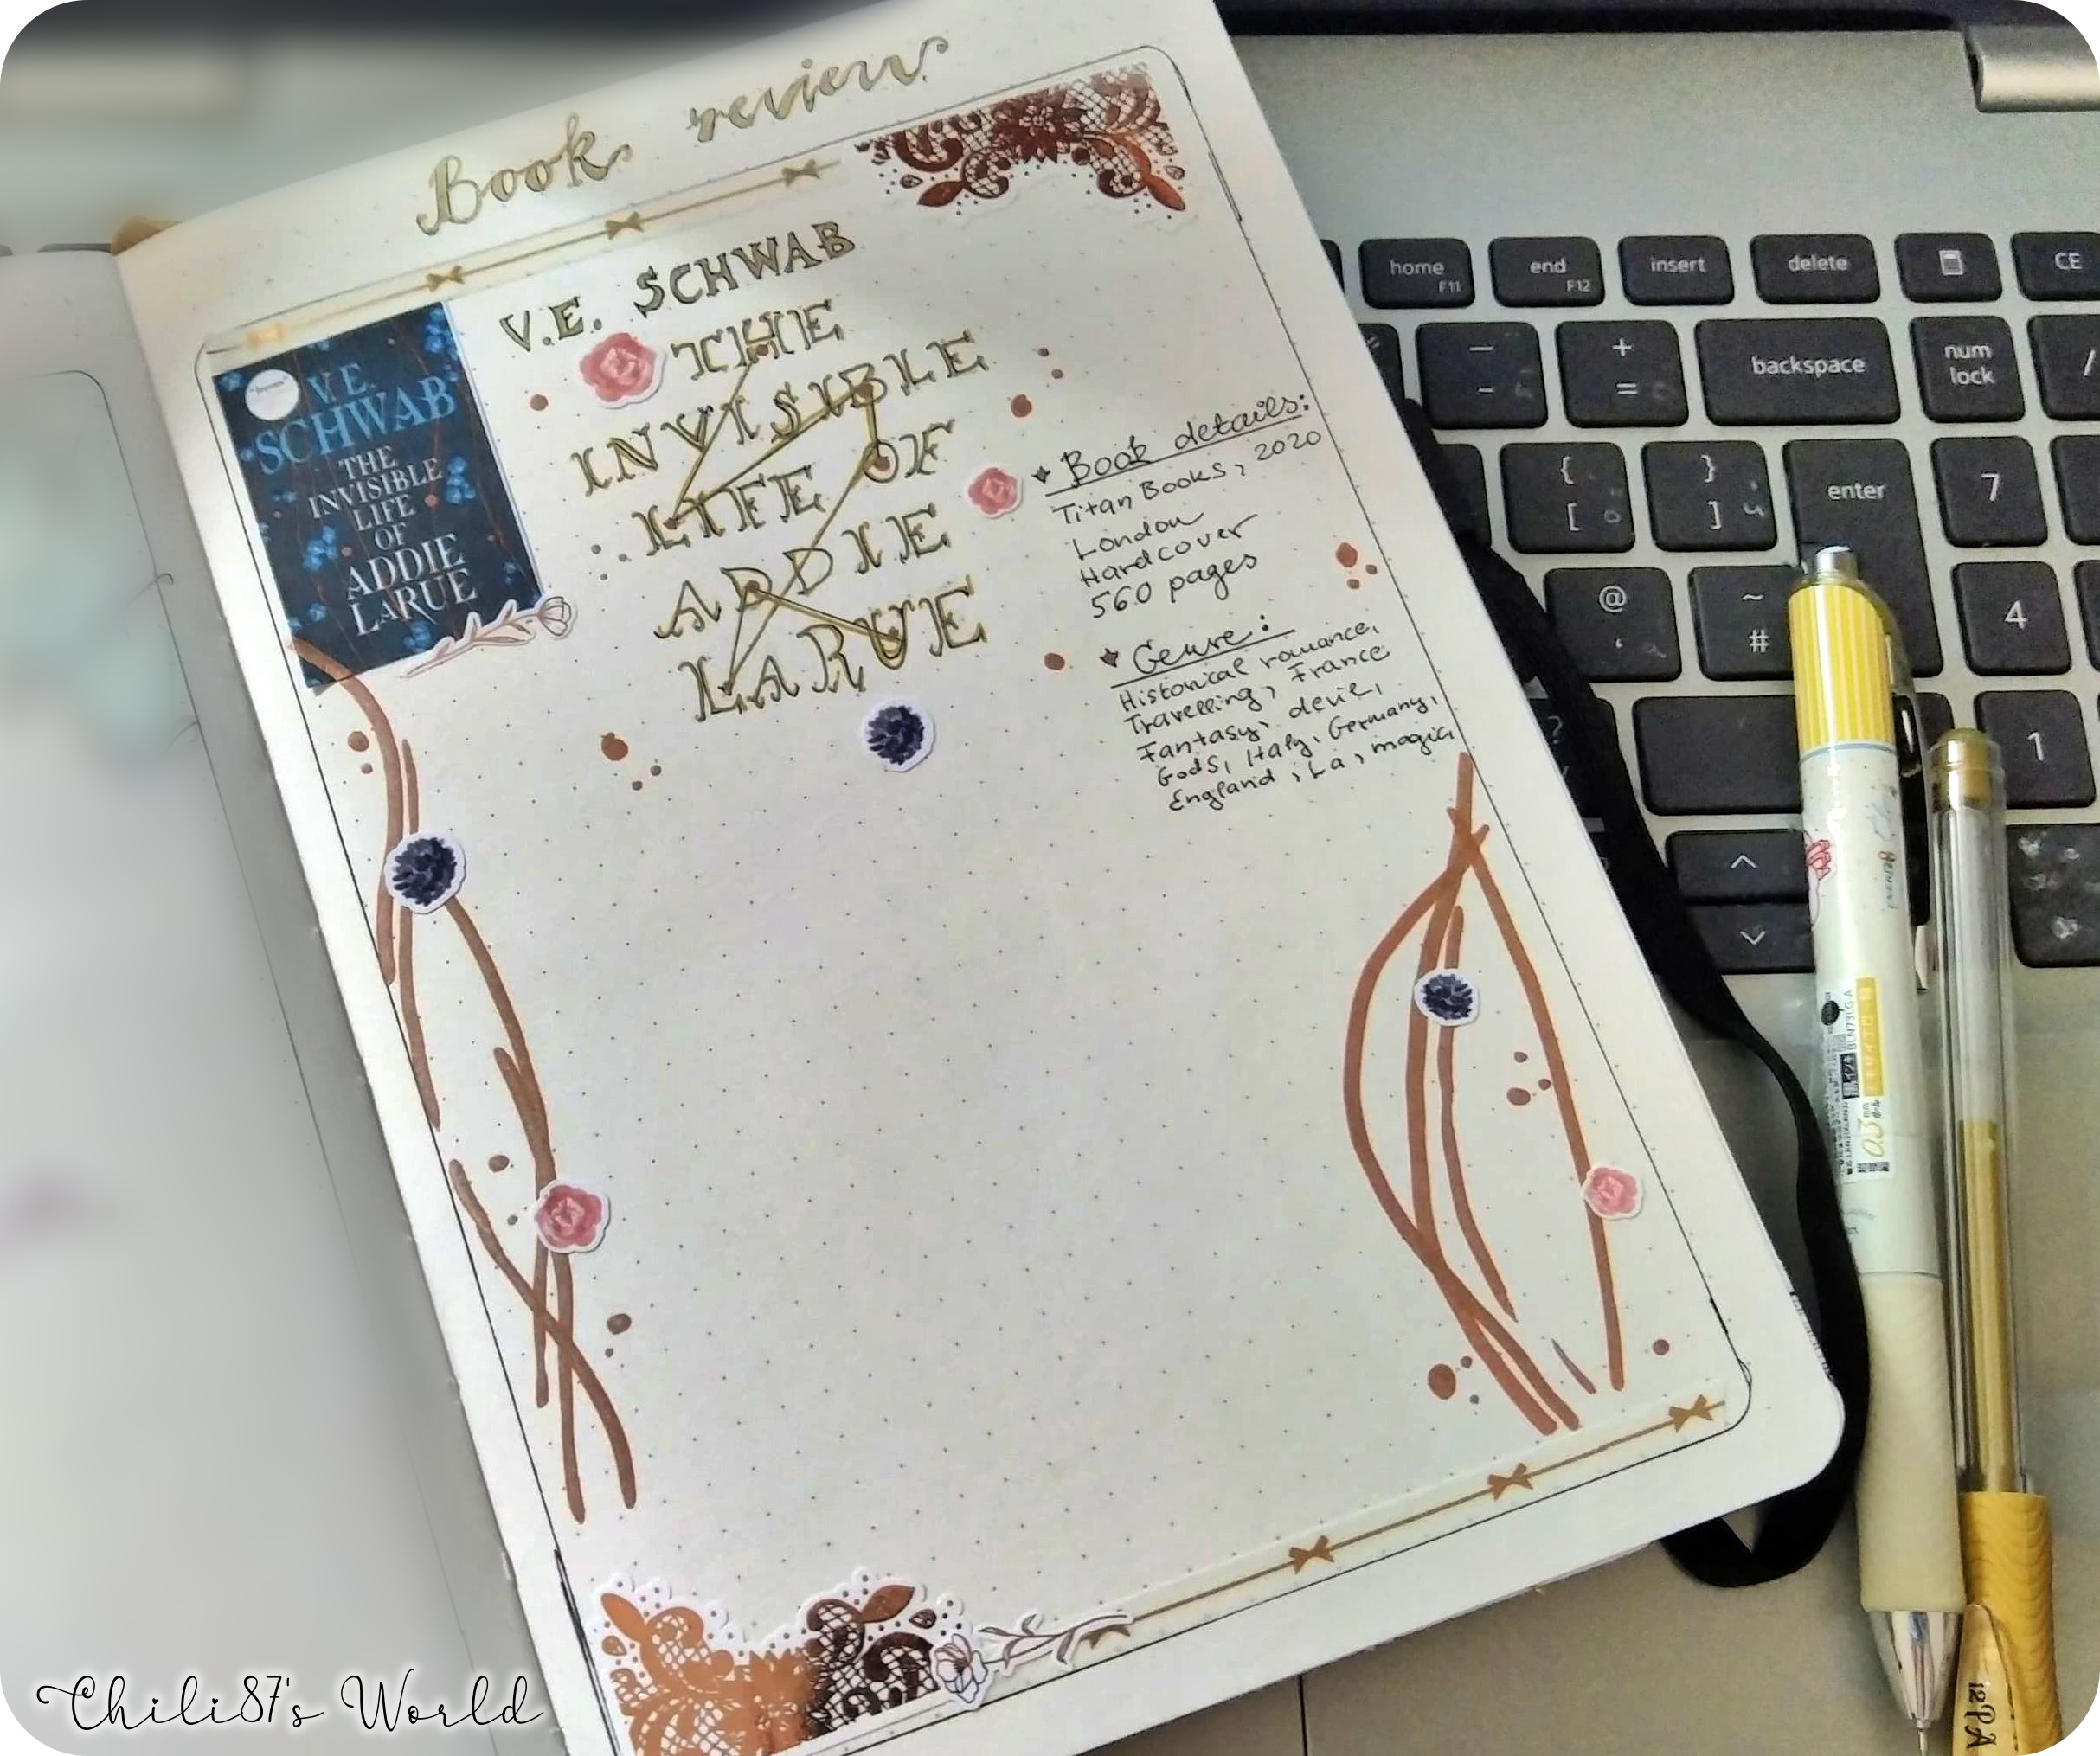 Book review
V.E. SCHWAB
THE
INVISIBLE
LIFE OF
ADDIE
LARUE
V.E.
SCHWAB
THE
INVISIBLE
LIFE
OF
ADDIE
LARUE
Book details:
Titan Books, 2020
London
Hardcover
560 pages
Genre:
Historical romance,
Travelling, France
Fantasy, devil,
Gods, Italy, Germany,
England, La, magic
home F11
end F12
insert
delete
CE
backspace
num lock
/
enter
7
4
1
{ [
} ]
+ =
@ '
~ #
0.3
Chili87's World